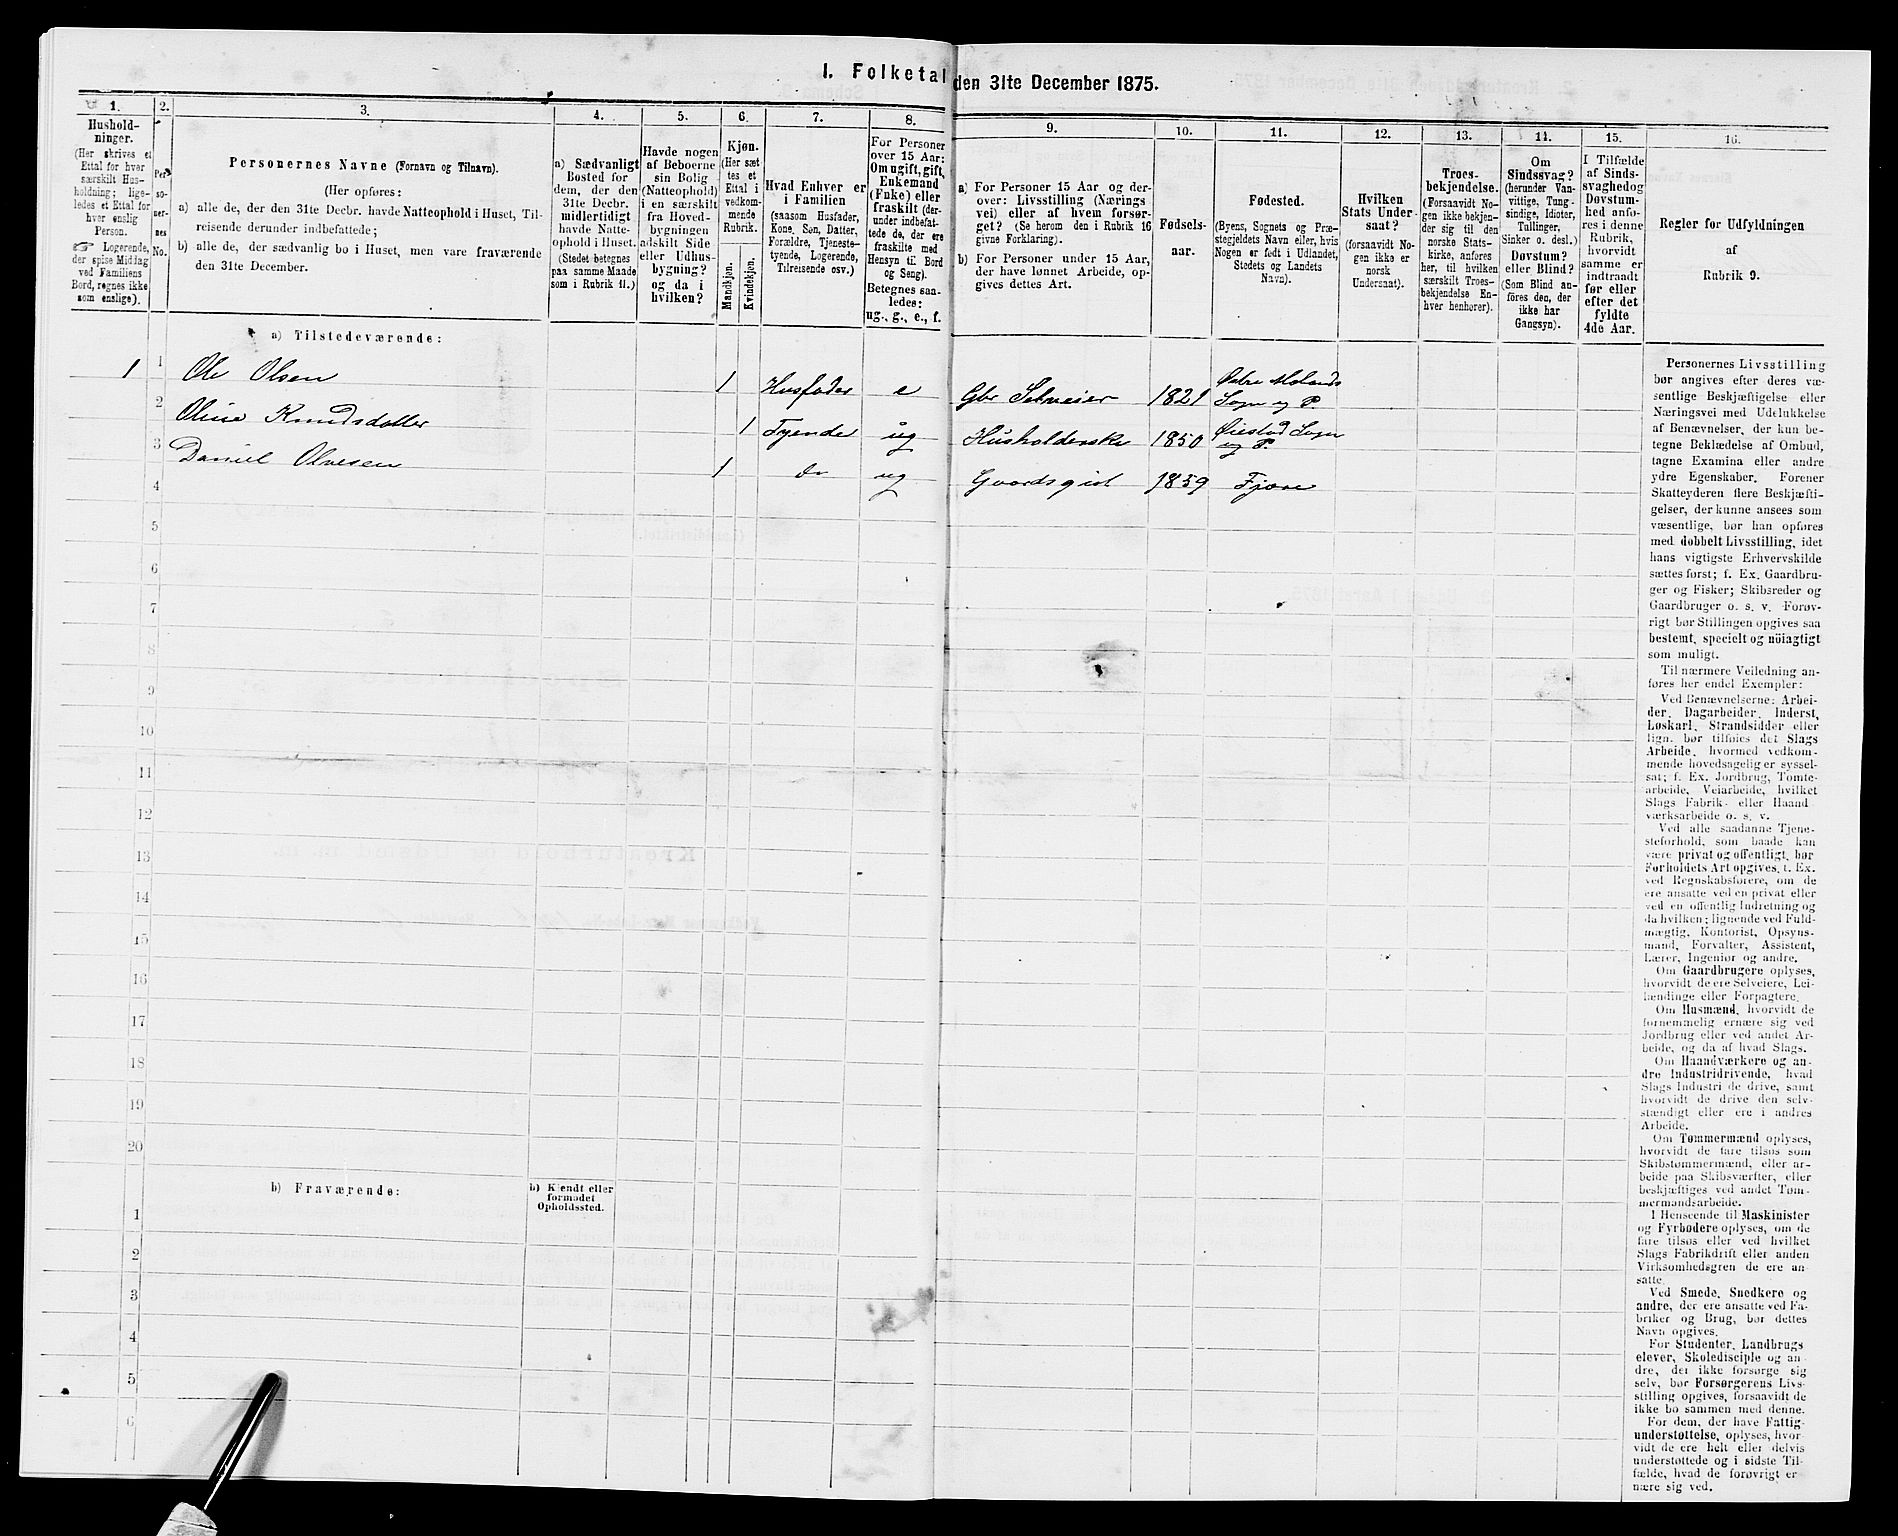 I. Folketal den 31te December 1875.
1.
Hushold-
ninger.
(Her skrives et
Ettal for hver
særskilt Hus-
holdning; lige-
ledes et Ettal for
hver enslig
Person.
☞ Logerende,
der spise Middag
ved Familiens
Bord, regnes ikke
som enslige).
2.
Per-
so-
ner-
nes
No.
3.
Personernes Navne (Fornavn og Tilnavn).
(Her opføres:
a) alle de, der den 31te Decbr. havde Natteophold i Huset, Til-
reisende derunder indbefattede;
b) alle de, der sædvanlig bo i Huset, men vare fraværende
den 31te December.
4.
a) Sædvanligt
Bosted for
dem, der den
31te Decbr.
midlertidigt
havde Natte-
ophold i Huset.
(Stedet betegnes
paa samme Maade
som i Rubrik 11.)
5.
Havde nogen
af Beboerne
sin Bolig
(Natteophold)
i en særskilt
fra Hoved-
bygningen
adskilt Side
eller Udhus-
bygning?
og da i
hvilken?
6.
Kjøn.
(Her sæt
tes et
Ettal i
vedkom-
mende
Rubrik.
Mandkjøn.
Kvindekjøn.
7.
Hvad Enhver er
i Familien
(saasom Husfader,
Kone, Søn, Datter,
Forældre, Tjeneste-
tyende, Logerende,
Tilreisende osv.)
8.
For Personer
over 15 Aar:
Om ugift, gift,
Enkemand
(Enke) eller
fraskilt (der-
under indbefat-
tede de, der ere
fraskilte med
Hensyn til Bord
og Seng).
Betegnes saa-
ledes:
ug., g., e., f.
9.
a) For Personer 15 Aar og der-
over: Livsstilling (Nærings
vei) eller af hvem forsør-
get? (Se herom den i Rubrik 16
givne Forklaring).
b) For Personer under 15 Aar,
der have lønnet Arbeide, op-
gives dettes Art.
10.
Fødsels-
aar.
11.
Fødested.
(Byens, Sognets og Præ-
stegjeldets Navn eller, hvis
Nogen er født i Udlandet,
Stedets og Landets
Navn).
12.
Hvilken
Stats Under-
saat?
(forsaavidt No-
gen ikke er
norsk
Undersaat).
13.
Troes-
bekjendelse.
(Forsaavidt No-
gen ikke bekjen-
der sig til den
norske Stats-
kirke, anføres
her, til hvilken
særskilt Troes-
bekjendelse En-
hver henhører).
14.
Om
Sindssvag?
(herunder Van-
vittige, Tung-
sindige, Idioter,
Tullinger,
Sinker o. desl.)
Døvstum?
eller Blind?
(Som Blind an-
føres den, der
ikke har
Gangsyn).
15.
I Tilfælde
af Sinds-
svaghed og
Døvstum-
hed anfø-
res i denne
Rubrik,
hvorvidt
samme er
indtraadt
før eller
efter det
fyldte
4de Aar.
16.
Regler for Udfyldningen
af
Rubrik 9.
a) Tilstedeværende:
1 1 Ole Olsen 1 Husfader e Gbr Selveier 1821 Østre Molands
Sogn og P.
2 Oline Knudsdatter 1 Tyende ug Husholderske 1850 Øiestad Sogn
og P.
3 Daniel Olvesen 1 do ug Gaardsgut 1859 Fjære
4
5
6
7
8
9
10
11
12
13
14
15
16
17
18
19
20
b) Fraværende:
b) Kjendt eller
formodet
Opholdssted.
1
2
3
4
5
6
Personernes Livsstilling
bør angives efter deres væ-
sentlige Beskjæftigelse eller
Næringsvei med Udelukkelse
af Benævnelser, der kun be-
tegne Beklædelse af Ombud,
tagne Examina eller andre
ydre Egenskaber. Forener
Skatteyderen flere Beskjæfti-
gelser, der kunne ansees som
væsentlige, bør han opføres
med dobbelt Livsstilling, idet
hans vigtigste Erhvervskilde
sættes først; f. Ex. Gaardbru-
ger og Fisker; Skibsreder og
Gaardbruger o. s. v. Forøv-
rigt bør Stillingen opgives saa
bestemt, specielt og nöiagtigt
som muligt.
Til nærmere Veiledning an-
føres her endel Exempler:
Ved Benævnelserne: Arbei-
der, Dagarbeider, Inderst,
Løskarl, Strandsidder eller
lign. bør tilføies det Slags
Arbeide, hvormed vedkom-
mende hovedsagelig er syssel-
sat; f. Ex. Jordbrug, Tomte-
arbeide, Veiarbeide, hvilket
Slags Fabrik- eller Haand
værksarbeide o. s. v.
Ved alle saadanne Tjene-
steforhold, som baade kan
være privat og offentligt, bør
Forholdets Art opgives, f. Ex.
ved Regnskabsførere, om de
ere ansatte ved en privat eller
ved en offentlig Indretning og
da hvilken; lignende ved Fuld-
mægtig, Kontorist, Opsyns-
mand, Forvalter, Assistent,
Lærer, Ingeniør og andre.
Om Gaardbrugere oplyses,
hvorvidt de ere Selveiere, Lei-
lændinge eller Forpagtere.
Om Husmænd, hvorvidt de
fornemmelig ernære sig ved
Jordbrug eller ved andet Ar-
beide, og da af hvad Slags.
Om Haandværkere og an-
dre Industridrivende, hvad
Slags Industri de drive, samt
hvorvidt de drive den selv-
stændigt eller ere i andres
Arbeide.
Om Tømmermænd oplyses,
hvorvidt de fare tilsøs som
Skibstømmermænd, eller ar-
beide paa Skibsværfter, eller
beskjæftiges ved andet Tøm-
mermandsarbeide.
I Henseende til Maskinister
og Fyrbødere oplyses, om de
fare tilsøs eller ved hvilket
Slags Fabrikdrift eller anden
Virksomhedsgren de ere an-
satte.
Ved Smede, Snedkere og
andre, der ere ansatte ved Fa-
briker og Brug, bør dettes
Navn opgives.
For Studenter, Landbrugs
elever, Skoledisciple og an-
dre, der ikke forsørge sig
selv, bør Forsørgerens Livs-
stilling opgives, forsaavidt de
ikke bo sammen med denne.
For dem, der have Fattig-
understøttelse, oplyses, hvor-
vidt de ere helt eller delvis
understøttede og i sidste Til-
fælde, hvad de forøvrigt er
nære sig ved.